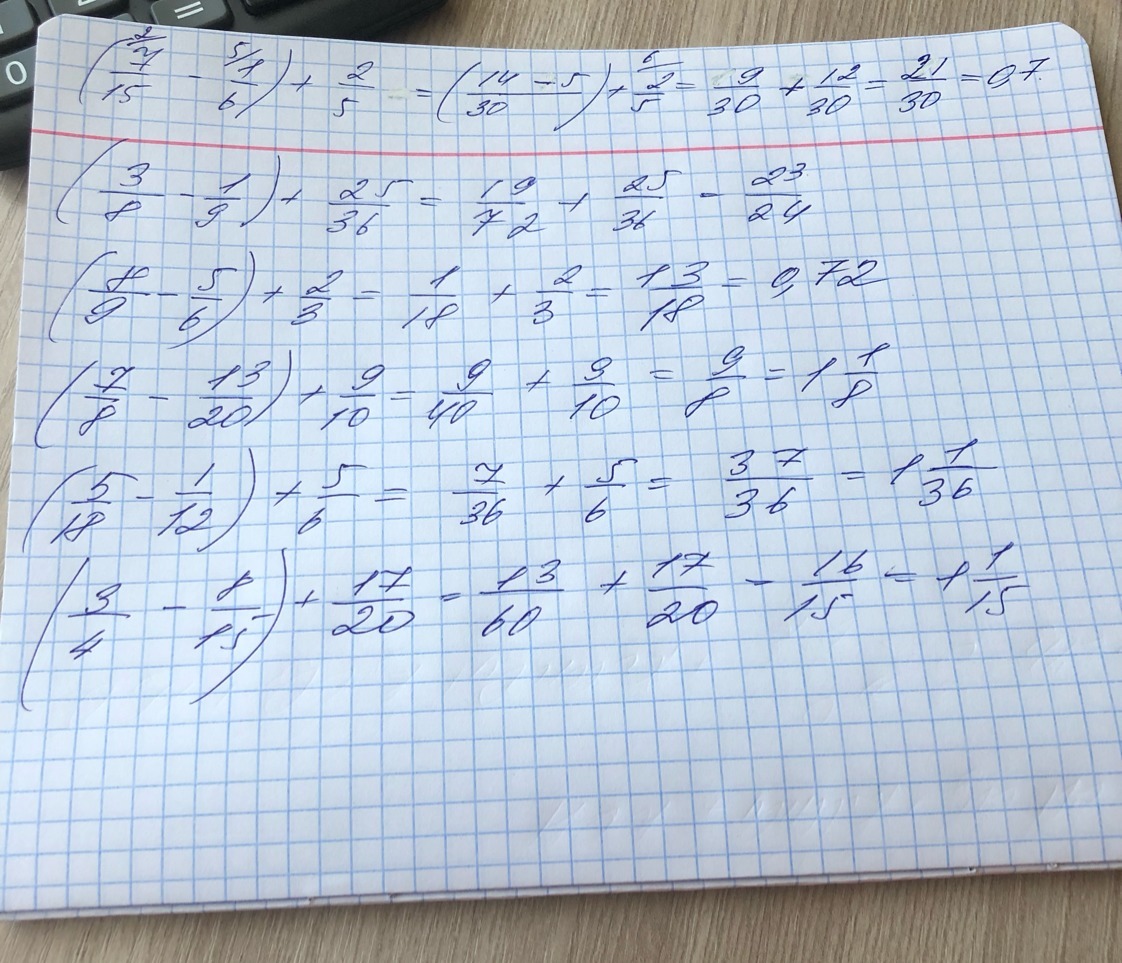 (7/15 - 1/6) + 2/5 = (14 - 5/30) + 2/5 = 9/30 + 12/30 = 21/30 = 0,7.
(3/8 - 1/9) + 25/36 = 19/72 + 25/36 - 23/24
(8/9 - 5/6) + 2/3 = 1/18 + 2/3 = 13/18 = 0,72
(7/8 - 13/20) + 9/10 = 9/40 + 9/10 = 9/8 = 1 1/8
(5/18 - 1/12) + 5/6 = 7/36 + 5/6 = 37/36 = 1 1/36
(3/4 - 8/15) + 17/20 = 13/60 + 17/20 - 16/15 = 1 1/15